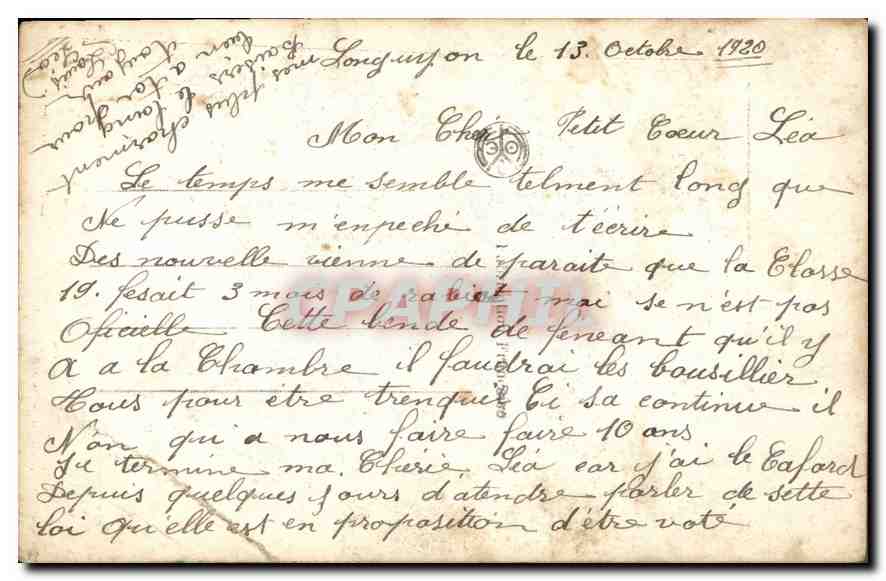 Longuyon le 13. Octobre 1920
Mon Cheri Petit Coeur Léa
Le temps me semble telment long que
Ne pusse m'enpeché de t'écrire
Des nouvelle vienne de paraite que la Classe
19. fesait 3 mois de rabiot mai se n'est pas
Oficielle Cette bende de feneant qu'il y
A a la Chambre il faudrai les bousillier
Tous pour étre trenquil Ci sa continue il
N'on qu'a nous faire faire 10 ans
Je termine ma Chérie Léa car j'ai le Cafard
Depuis quelques jours d'atendre parler de sette
loi qu'elle est en proposition d'étre voté
mes plus charment
Baisers de
bien a toi
Louis
Léa
CPAPHIL